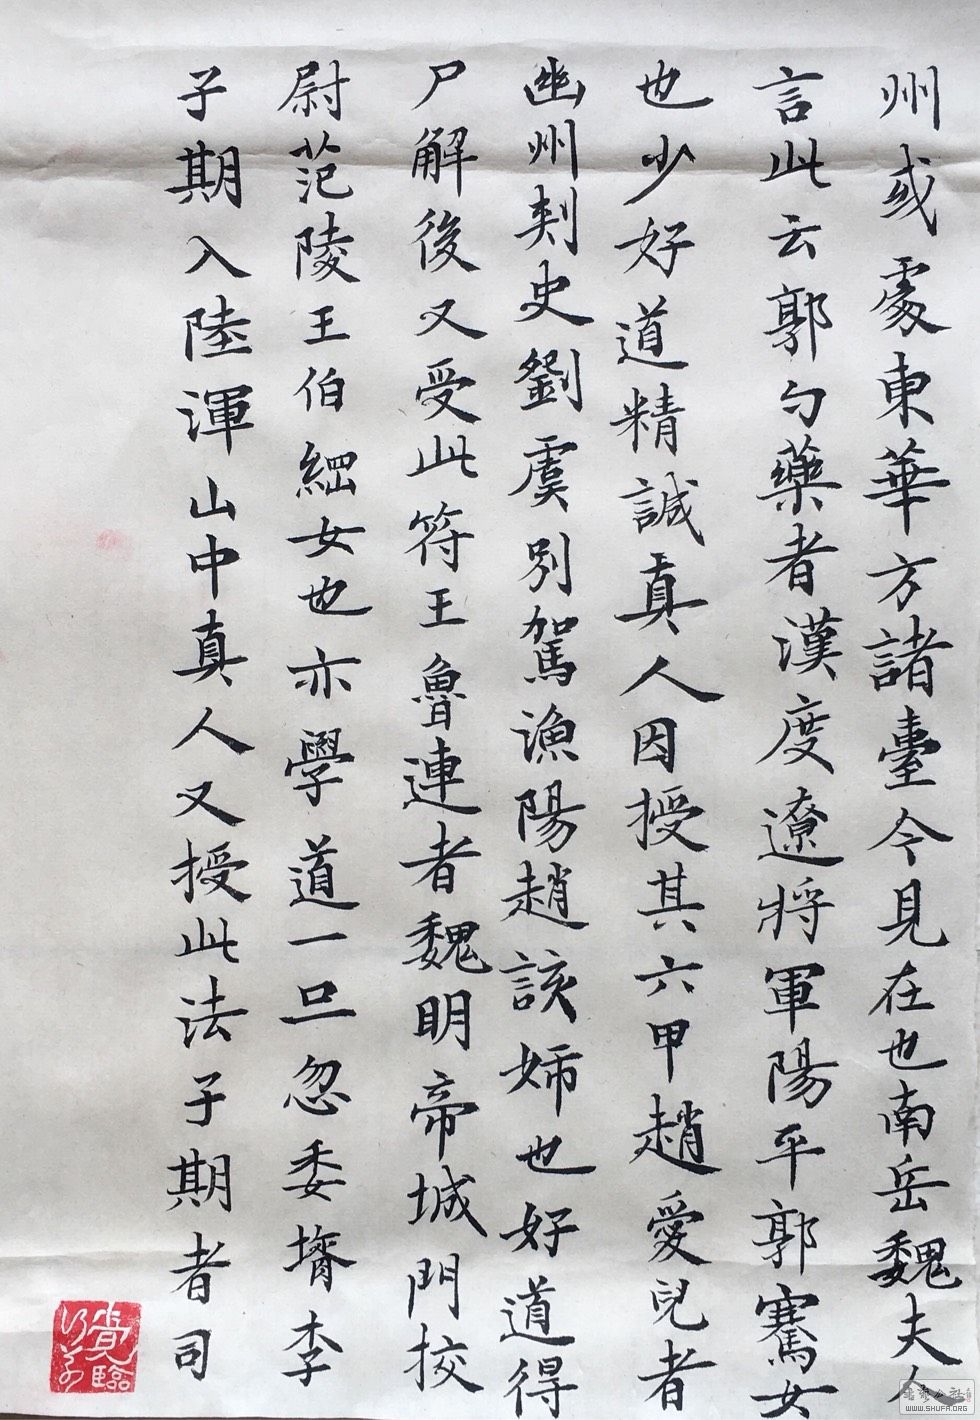 州或處東華方諸臺今見在也南岳魏夫人
言此云郭勺藥者漢度遼將軍陽平郭騫女
也少好道精誠真人因授其六甲趙愛兒者
幽州刾史劉虞別駕漁陽趙該姉也好道得
尸解後又受此符王魯連者魏明帝城門挍
尉范陵王伯細女也亦學道一旦忽委壻李
子期入陸渾山中真人又授此法子期者司
覺
臨
書法公社
WWW.SHUFA.ORG